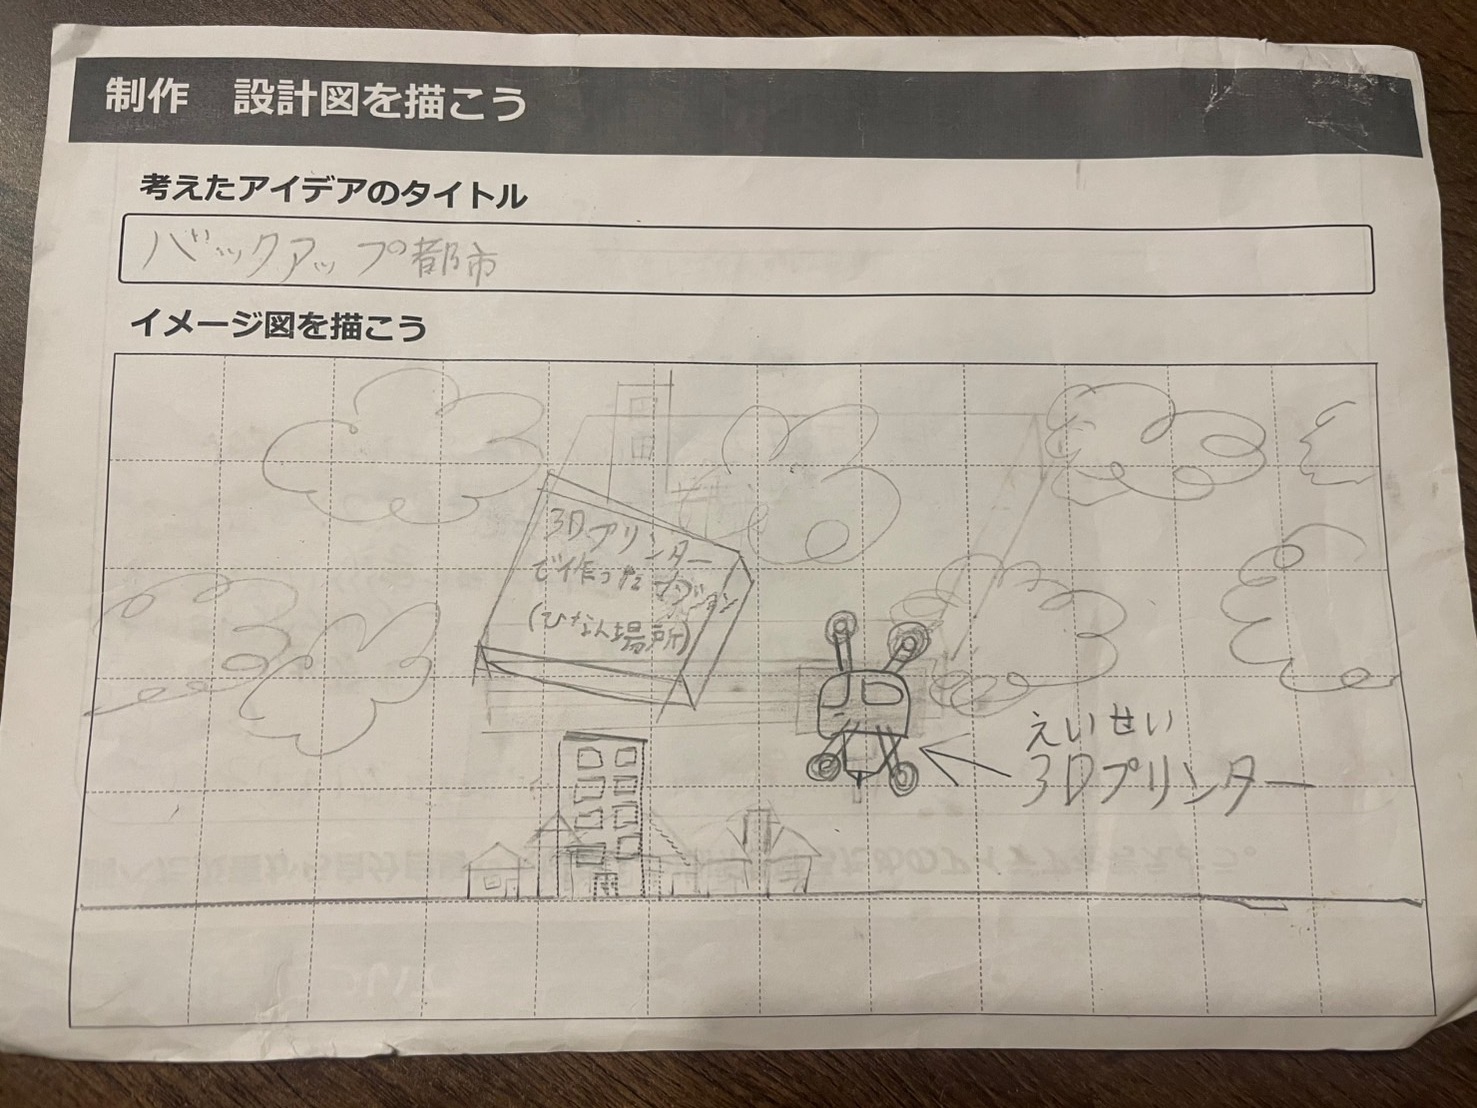 制作　設計図を描こう
考えたアイデアのタイトル
バックアップ都市
イメージ図を描こう
3Dプリンター
で作った
(ひなん場所)
えいせい
3Dプリンター